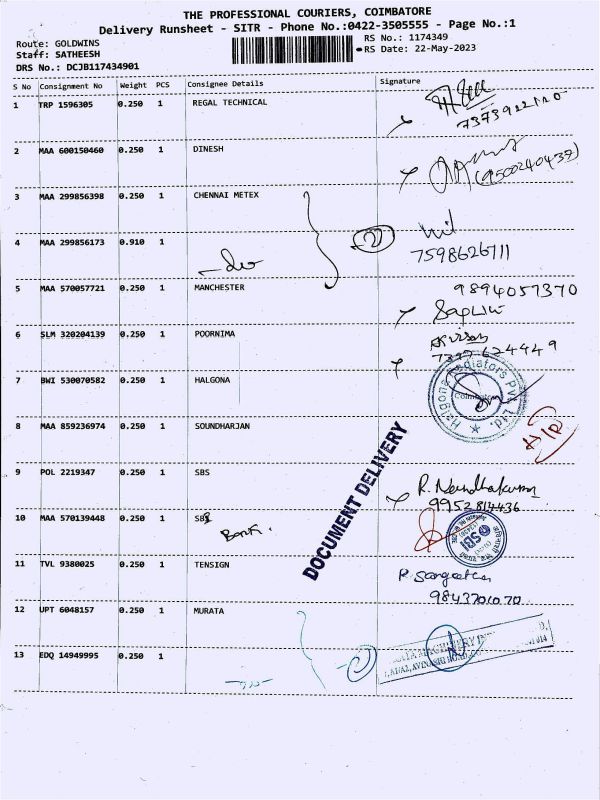 THE PROFESSIONAL COURIERS, COIMBATORE
Delivery Runsheet - SITR - Phone No.:0422-3505555 - Page No.:1
Route: GOLDWINS
RS No.: 1174349
Staff: SATHEESH
RS Date: 22-May-2023
DRS No.: DCJB117434901
S No Consignment No Weight PCS Consignee Details Signature
1 TRP 1596305 0.250 1 REGAL TECHNICAL
2 MAA 600150460 0.250 1 DINESH
(9500240439)
3 MAA 299856398 0.250 1 CHENNAI METEX
4 MAA 299856173 0.910 1
-do-
2
7598626711
5 MAA 570057721 0.250 1 MANCHESTER
9894057370
6 SLM 320204139 0.250 1 POORNIMA
7 BWI 530070582 0.250 1 HALGONA
Halgona Radiators Pvt. Ltd.
Coimbatore
8 MAA 859236974 0.250 1 SOUNDHARJAN
9 POL 2219347 0.250 1 SBS
DOCUMENT DELIVERY
R. Nandhakumar
9952814436
10 MAA 570139448 0.250 1
Bank.
SBI
11 TVL 9380025 0.250 1 TENSIGN
R. Sangeetha
9843701070
12 UPT 6048157 0.250 1 MURATA
13 EDQ 14949995 0.250 1
2